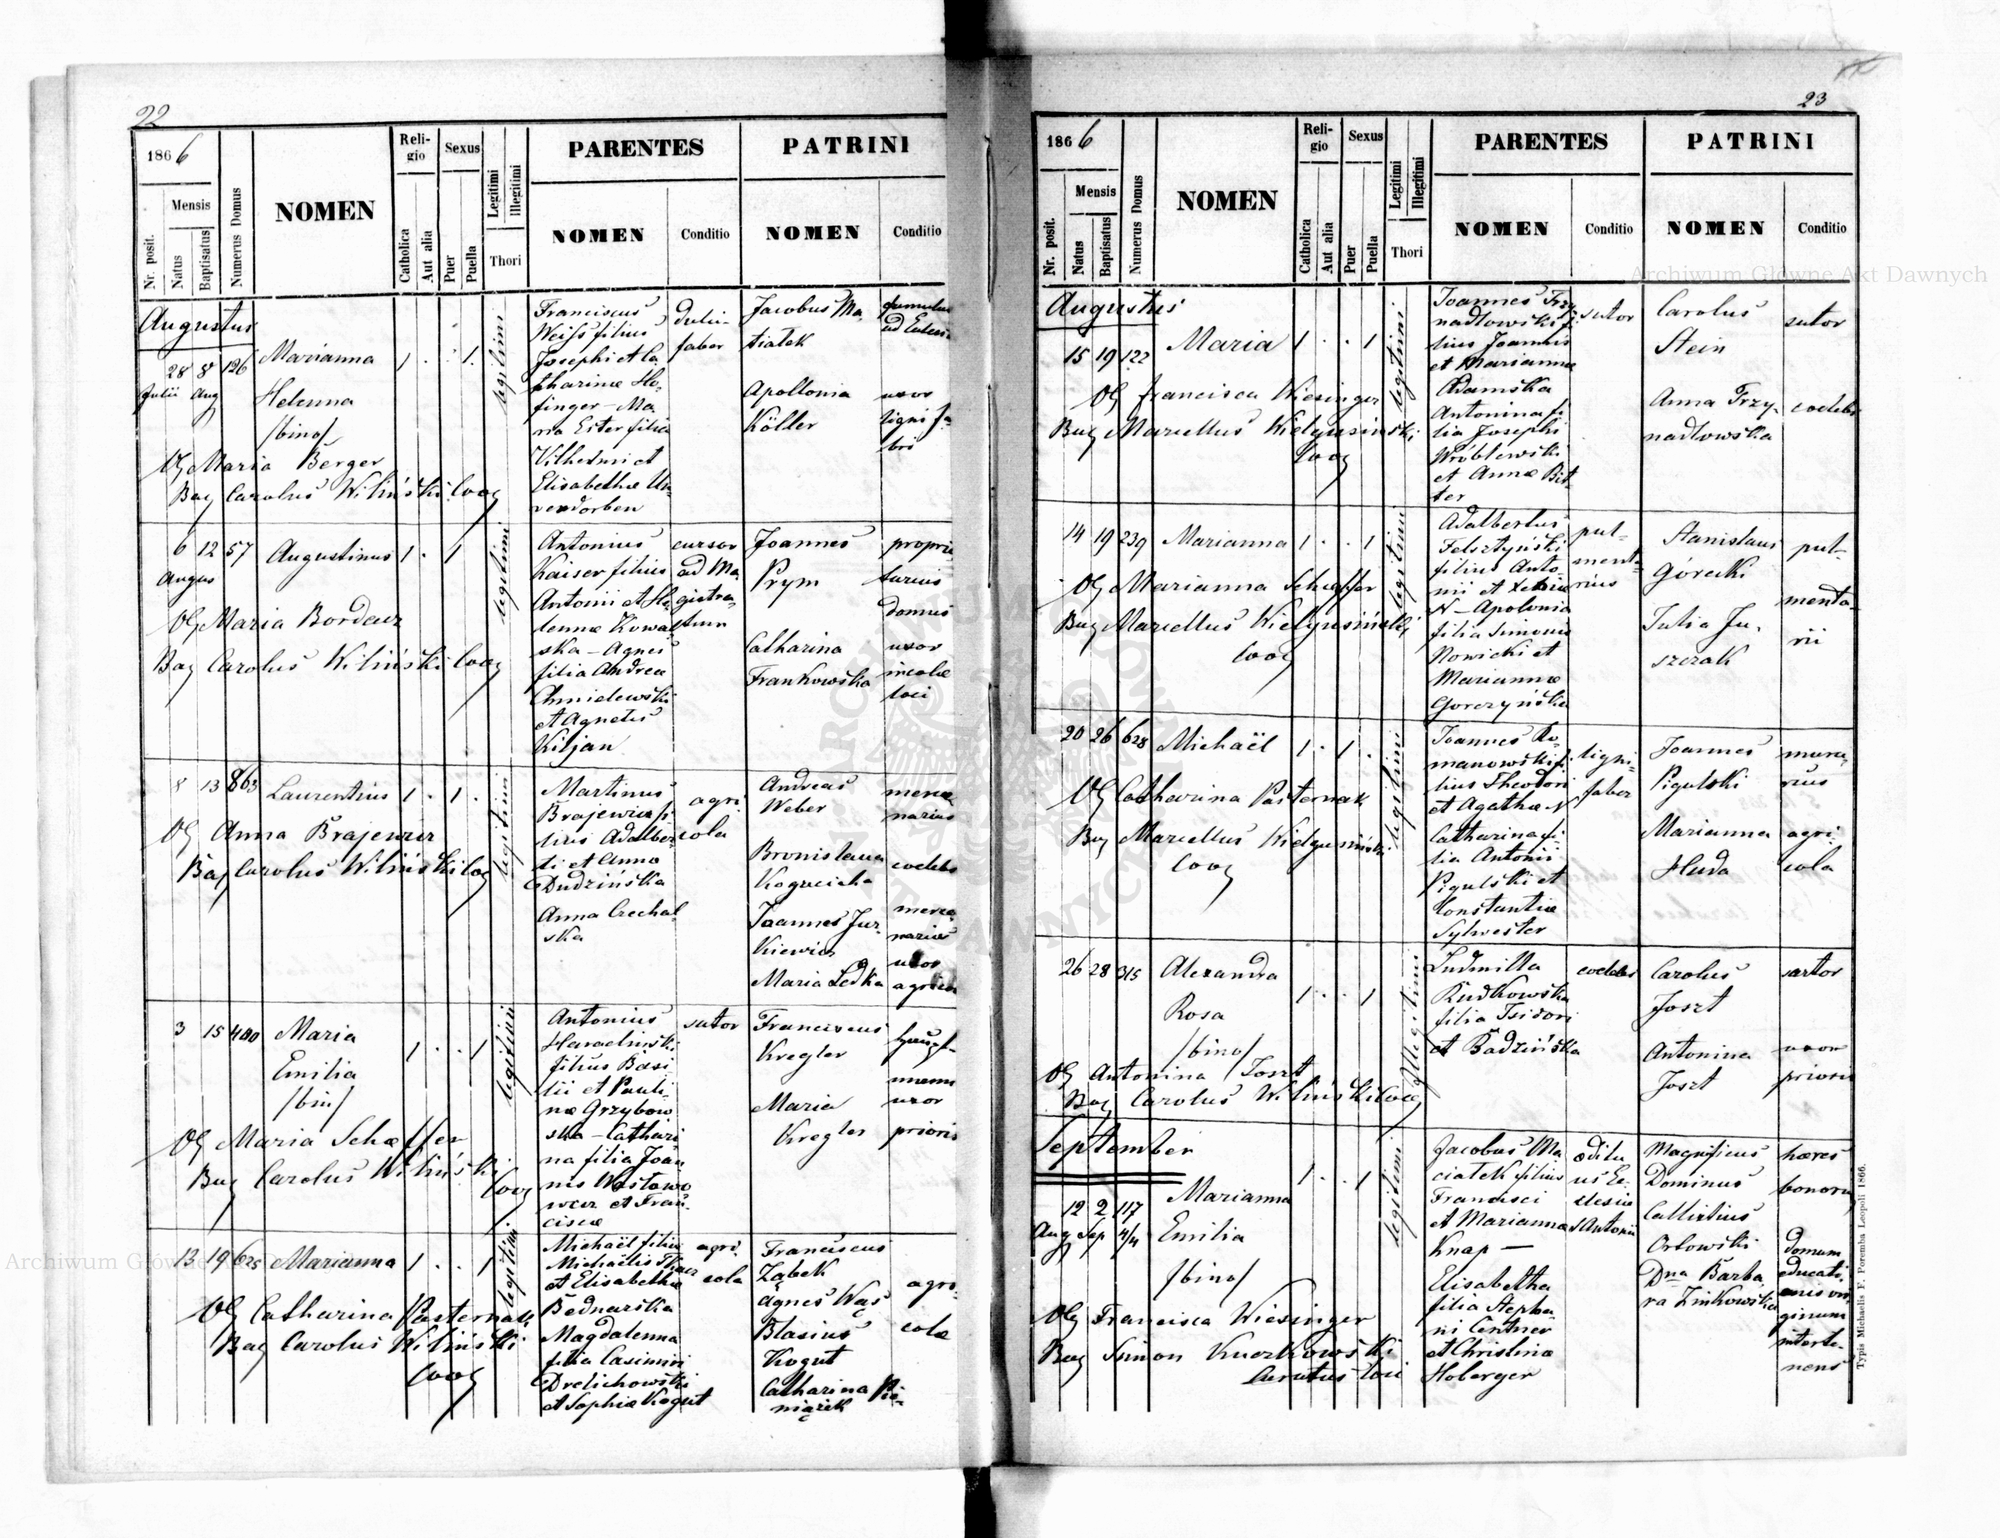 22
1866
Reli-
gio
Sexus
Legitimi
Illegitimi
PARENTES
PATRINI
Mensis
Nr. posit.
Natus
Baptisatus
Numerus Domus
NOMEN
Catholica
Aut alia
Puer
Puella
Thori
NOMEN
Conditio
NOMEN
Conditio
Augustus
28 8 126 Marianna 1 . . 1.
Julii Aug
Helenna
/bino/
Og Maria Berger
Bag Carolus Wiliński Coog
legitimi
Franciscus
Weiss filius
Josephi et Ca
tharinæ Ho-
finger - Ma-
ria Ester filia
Vilhelmi et
Elisabethæ Un-
verdorben
faber
Jacobus Ma-
tiatek
Apollonia
Köller
uxor
ligni fa-
bri
6 12 57 Augustinus 1 . 1
Augus
Og Maria Bordeux
Bag Carolus Wiliński Coog
legitimi
Antonius
Kaiser filius
Antonii et He-
lennæ Kowal
ska - Agnes
filia Andreæ
Chmielewski
et Agnetis
Kiljan
cursor
ad Ma-
gistra-
tum
Joannes
Prym
Catharina
Frankowska
proprie
tarius
domus
uxor
incolæ
loci
8 13 863 Laurentius 1 . 1 .
Og Anna Brajewicz
Bag Carolus Wiliński Coog
legitimi
Martinus
Brajewicz fi
lius Adalber
ti et Annæ
Dudzińska
Anna Czechal-
ska
agri
cola
Andreas
Weber
Bronislaua
Joannes Jur-
kiewicz
Maria Ledka
merce
narius
coelebs
merce
narius
uxor
agricolæ
3 15 400 Maria 1 . . 1
Emilia
/bin/
Og Maria Schæffer
Bag Carolus Wiliński
Coog
legitimi
Antonius
filius Basi
lii et Pauli
næ Grzybow
ska - Cathari
na filia Joan
nis Wastawo
wcz et Fran
ciscæ
sutor
Franciscus
Kregler
Maria
Kregler
uxor
prioris
13 19 625 Marianna 1 . . 1
Og Catharina Pasternak
Bag Carolus Wiliński
Coog
legitimi
Michaël filius
Michaëlis Tkacz
et Elisabethæ
Bednarska
Magdalenna
filia Casimiri
Drelichowski
et Sophiæ Kogut
agri
cola
Franciscus
Ząbek
Agnes Wąs
Blasius
Kogut
Catharina Pie-
niążek
agri-
colæ
23
1866
Reli-
gio
Sexus
Legitimi
Illegitimi
PARENTES
PATRINI
Mensis
Nr. posit.
Natus
Baptisatus
Numerus Domus
NOMEN
Catholica
Aut alia
Puer
Puella
Thori
NOMEN
Conditio
NOMEN
Conditio
Augustus
15 19 122 Maria 1 . . 1
Og Francisca Wiesinger
Bag Marcellus Kielyusiński
Coog
legitimi
Joannes Trzy
nadlowski fi-
lius Joannis
et Mariannæ
Adamska
Antonina fi
lia Josephi
Wróblewski
et Annæ Bit-
ter
sutor
Carolus
Stein
Anna Trzy-
nadlowska
sutor
coelebs
14 19 239 Marianna 1 . . 1
Og Marianna Schæffer
Bag Marcellus Kielyusiński
Coog
legitimi
Adalbertus
Felsztyński
filius Anto-
N - Apolonia
filia Simonis
Nowicki et
Mariannæ
Gorczyńska
pul-
menta-
rius
Stanislaus
Górecki
Julia Ju-
szczak
pul-
menta-
rii
20 26 628 Michaël 1 . 1 .
Og Catharina Pasternak
Bag Marcellus Kielyusiński
Coog
legitimi
Joannes Ro-
manowski fi
lius Theodori
et Agathæ N
Catharina fi-
lia Antonii
Pigulski et
Constantiæ
Sylwester
ligni-
faber
Joannes
Pigulski
Marianna
Huda
mura-
rius
agri-
cola
26 28 315 Alexandra
Rosa 1 . . 1
/bino/
Og Antonina Joszt
Bag Carolus Wiliński Coog
Illegitimi
Ludmilla
Rudkowska
filia Isidori
et Badzińska
coelebs
Carolus
Joszt
Antonina
Joszt
sartor
uxor
prioris
September
12 2 117 Marianna 1 . . 1
Aug Sep 4/4 Emilia
/bino/
Og Francisca Wiesinger
Bag Simon Kuczkowski
Curatus loci
legitimi
Jacobus Ma-
ciatek filius
Francisci
et Mariannæ
Knap -
Elisabetha
filia Stepha
ni Centner
et Christinæ
Hoberger
æditu
us Ec-
clesiæ
S Antonii
Magnificus
Dominus
Callixtius
Orlowski
Dna Barba
ra Zinkowska
hæres
bonorum
domum
educati
onis vir
ginum
interte-
nens
Typis Michaelis F. Poremba Leopoli 1866.
Archiwum Główne Akt Dawnych
Archiwum Główne
ARCHIWUM GŁÓWNE AKT DAWNYCH